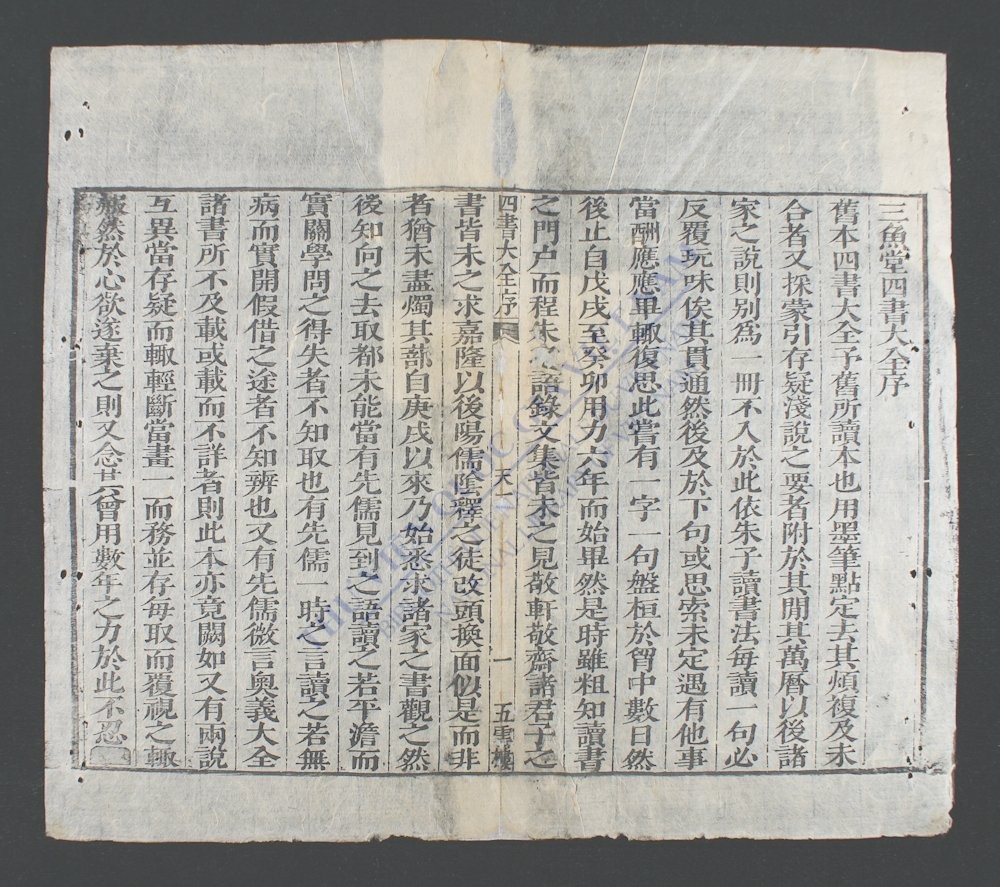 三魚堂四書大全序
舊本四書大全予舊所讀本也用墨筆點定去其煩複及未
合者又採蒙引存疑淺說之要者附於其間其萬曆以後諸
家之說則别為一冊不入於此依朱子讀書法每讀一句必
反覆玩味俟其貫通然後及於下句或思索未定遇有他事
當酬應應畢輙復思此嘗有一字一句盤桓於胷中數日然
後止自戊戌至癸卯用力六年而始畢然是時雖粗知讀書
之門户而程朱之語錄文集皆未之見敬軒敬齋諸君子之
四書大全序 天 一 五雲樓
書皆未之求嘉隆以後陽儒陰釋之徒改頭換面似是而非
者猶未盡燭其蔀自庚戌以來乃始悉求諸家之書觀之然
後知向之去取都未能當有先儒見到之語讀之若平澹而
實關學問之得失者不知取也有先儒一時之言讀之若無
病而實開假借之途者不知辨也又有先儒微言奥義大全
諸書所不及載或載而不詳者則此本亦竟闕如又有兩說
互異當存疑而輙輕斷當畫一而務並存每取而覆視之輙
然於心欲遂棄之則又念昔曾用數年之力於此不忍